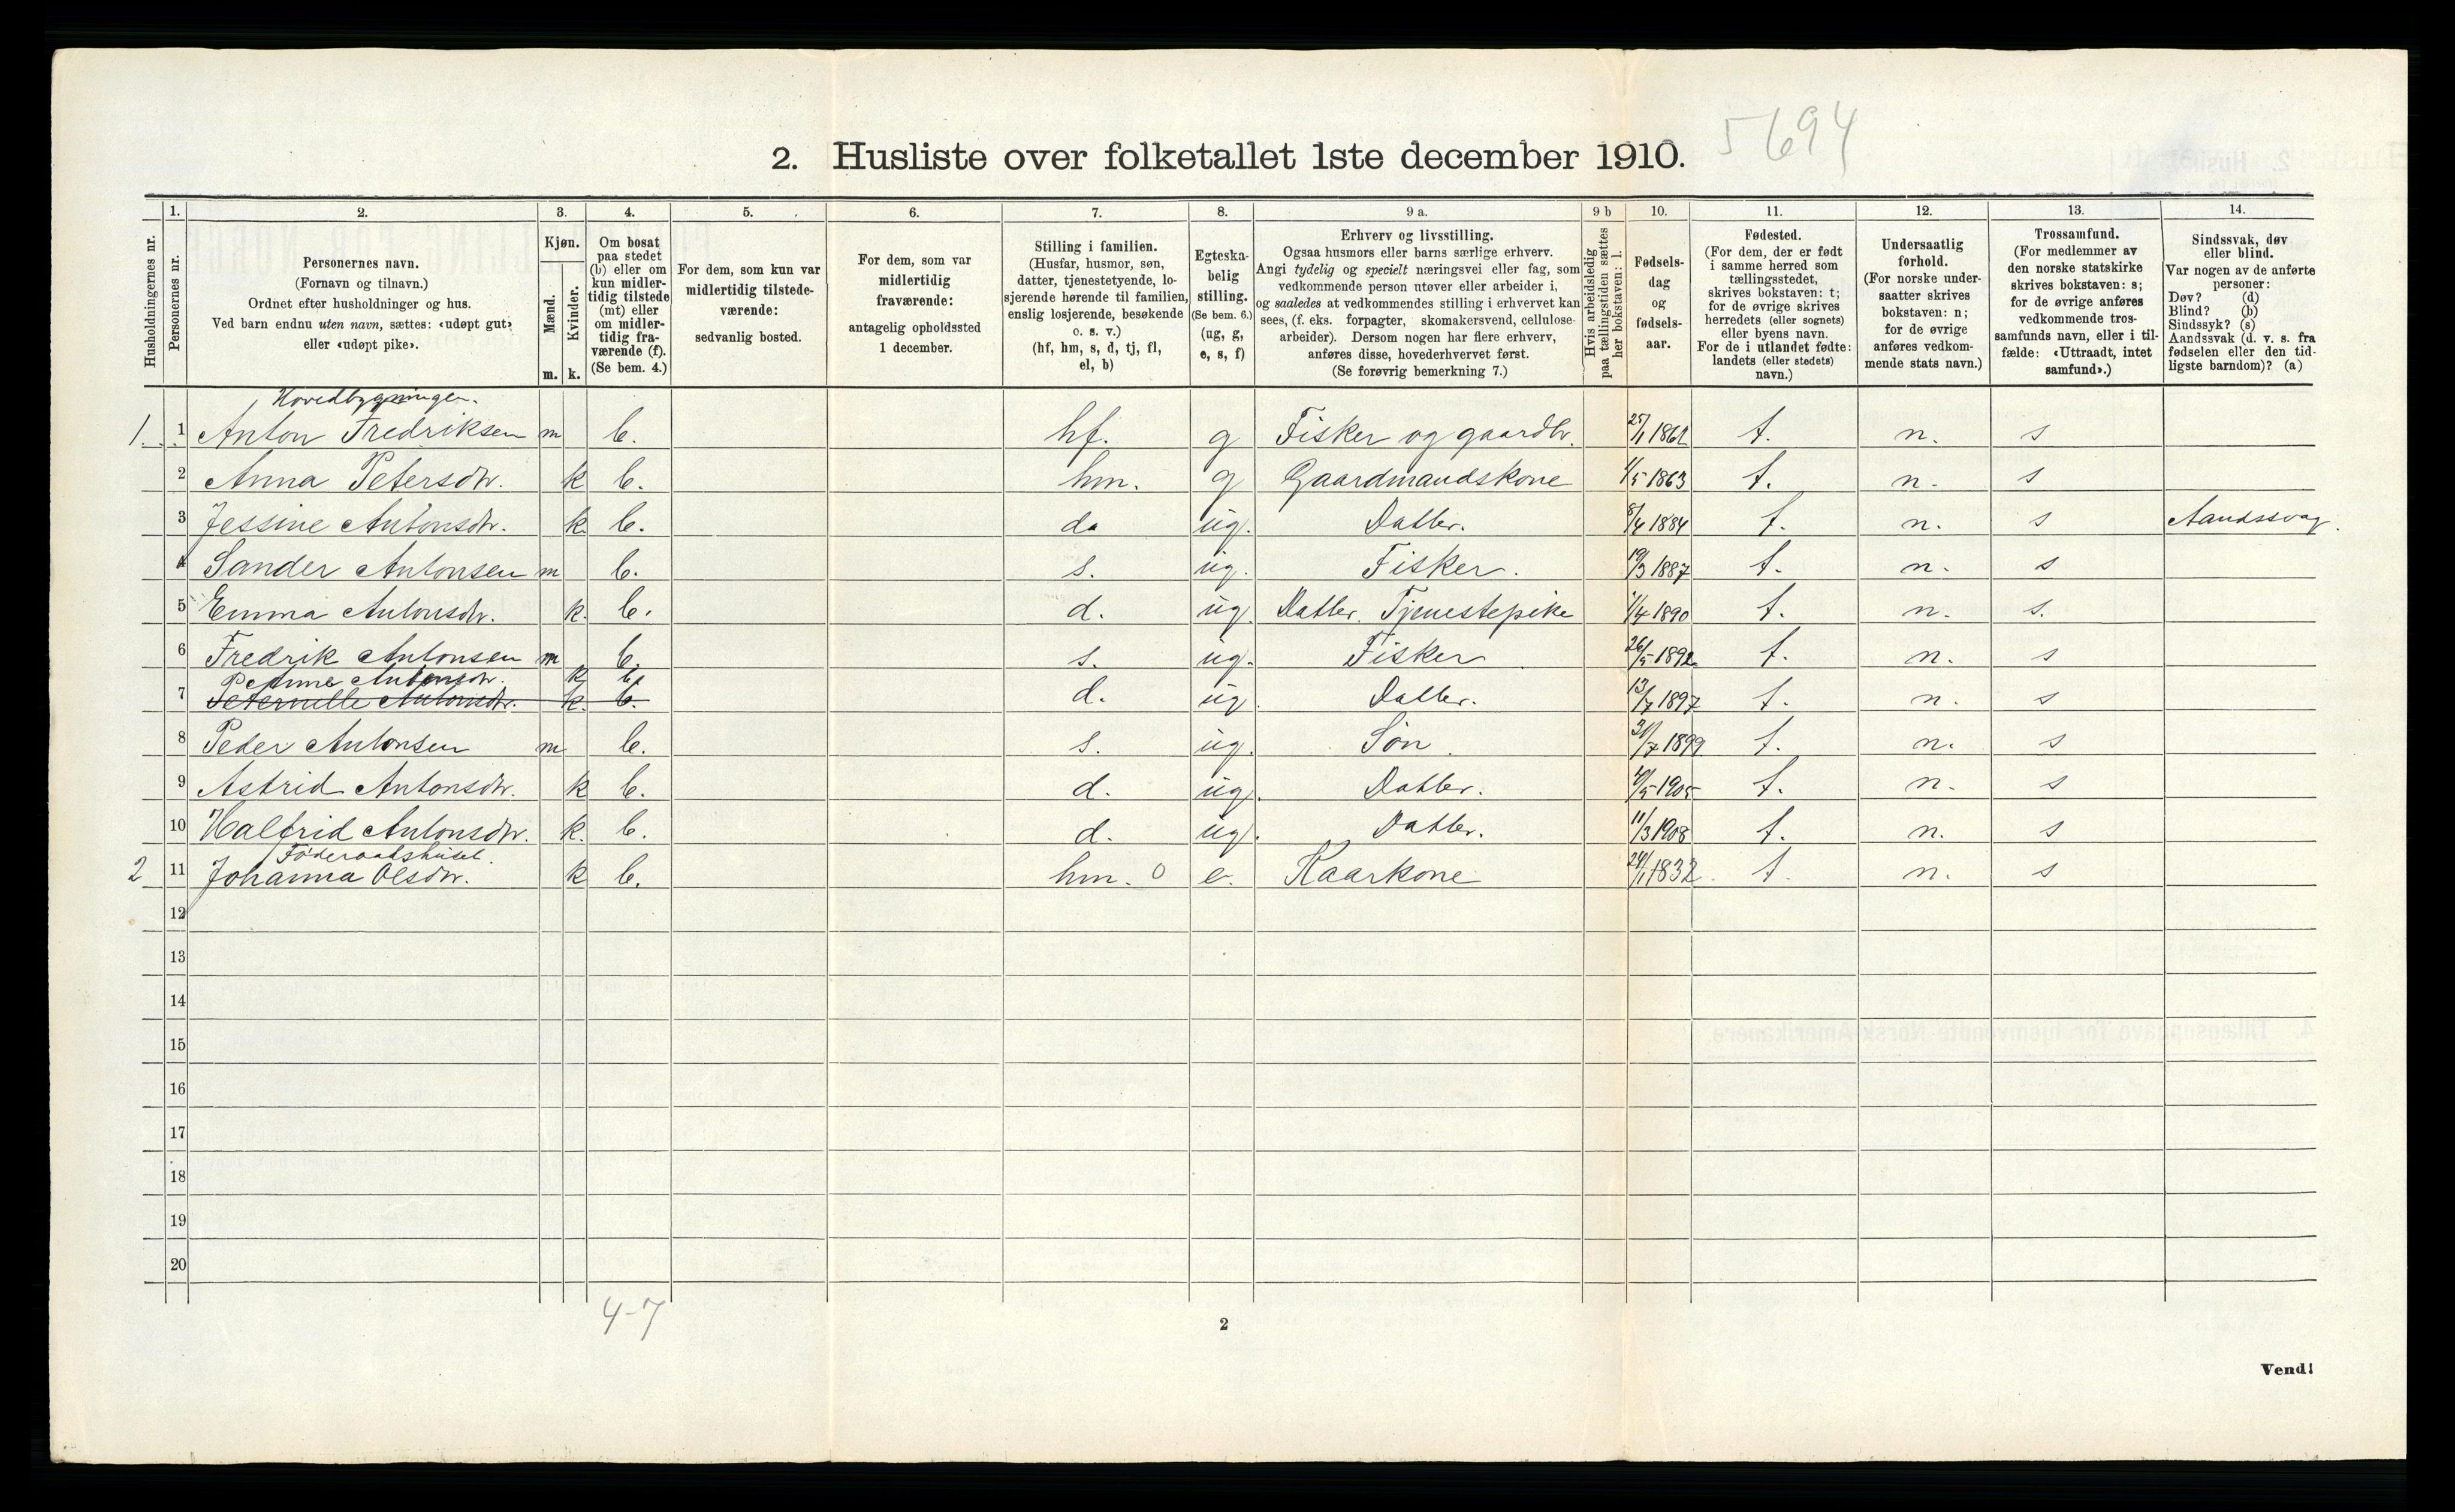 2. Husliste over folketallet 1ste december 1910. 5694
Husholdningernes nr.
1. Personernes nr.
2. Personernes navn. (Fornavn og tilnavn.) Ordnet efter husholdninger og hus. Ved barn endnu uten navn, sættes: «udøpt gut» eller «udøpt pike».
3. Kjøn. Mænd. m. Kvinder. k.
4. Om bosat paa stedet (b) eller om kun midlertidig tilstede (mt) eller om midlertidig fraværende (f). (Se bem. 4.)
5. For dem, som kun var midlertidig tilstedeværende: sedvanlig bosted.
6. For dem, som var midlertidig fraværende: antagelig opholdssted 1 december.
7. Stilling i familien. (Husfar, husmor, søn, datter, tjenestetyende, losjerende hørende til familien, enslig losjerende, besøkende o. s. v.) (hf, hm, s, d, tj, fl, el, b)
8. Egteskabelig stilling. (Se bem. 6.) (ug, g, e, s, f)
9 a. Erhverv og livsstilling. Ogsaa husmors eller barns særlige erhverv. Angi tydelig og specielt næringsvei eller fag, som vedkommende person utøver eller arbeider i, og saaledes at vedkommendes stilling i erhvervet kan sees, (f. eks. forpagter, skomakersvend, cellulosearbeider). Dersom nogen har flere erhverv, anføres disse, hovederhvervet først. (Se forøvrig bemerkning 7.)
9 b Hvis arbeidsledig paa tællingstiden sættes her bokstaven: l.
10. Fødselsdag og fødselsaar.
11. Fødested. (For dem, der er født i samme herred som tællingsstedet, skrives bokstaven: t; for de øvrige skrives herredets (eller sognets) eller byens navn. For de i utlandet fødte: landets (eller stedets) navn.)
12. Undersaatlig forhold. (For norske undersaatter skrives bokstaven: n; for de øvrige anføres vedkommende stats navn.)
13. Trossamfund. (For medlemmer av den norske statskirke skrives bokstaven: s; for de øvrige anføres vedkommende trossamfunds navn, eller i tilfælde: «Uttraadt, intet samfund».)
14. Sindssvak, døv eller blind. Var nogen av de anførte personer: Døv? (d) Blind? (b) Sindssyk? (s) Aandssvak (d. v. s. fra fødselen eller den tidligste barndom)? (a)
Hovedbygningen.
1. 1 Anton Fredriksen m b. hf. g Fisker og gaardbr. 25/1 1861 t. n. s
2 Anna Petersdtr. k b. hm. g Gaardmandskone 1/5 1863 t. n. s
3 Jessine Antonsdtr. k b. da ug. Datter. 8/4 1884 t. n. s Aandssvag.
4 Sander Antonsen m b. s. ug. Fisker. 19/3 1887 t. n. s
5 Emma Antonsdtr. k. b. d. ug. Datter. Tjenestepike 1/4 1890 t. n. s.
6 Fredrik Antonsen m b. s. ug. Fisker 26/5 1892 t. n. s
Antonsdtr. k b.
7 Peternelle Antonsdtr. k. b. d. ug. Datter. 13/7 1897 t. n. s
8 Peder Antonsen m b. s. ug. Søn. 31/7 1899 t. n. s
9 Astrid Antonsdtr. k b. d. ug. Datter. 4/5 1905 t. n. s
10 Halfrid Antonsdtr. k. b. d. ug. Datter. 11/3 1908 t. n. s
Föderaadshuset.
2 11 Johanna Olsdtr. k b. hm. 0 e. Kaarkone 24/1 1832. t. n. s
12
13
14
15
16
17
18
19
20
4-7
2
Vend!